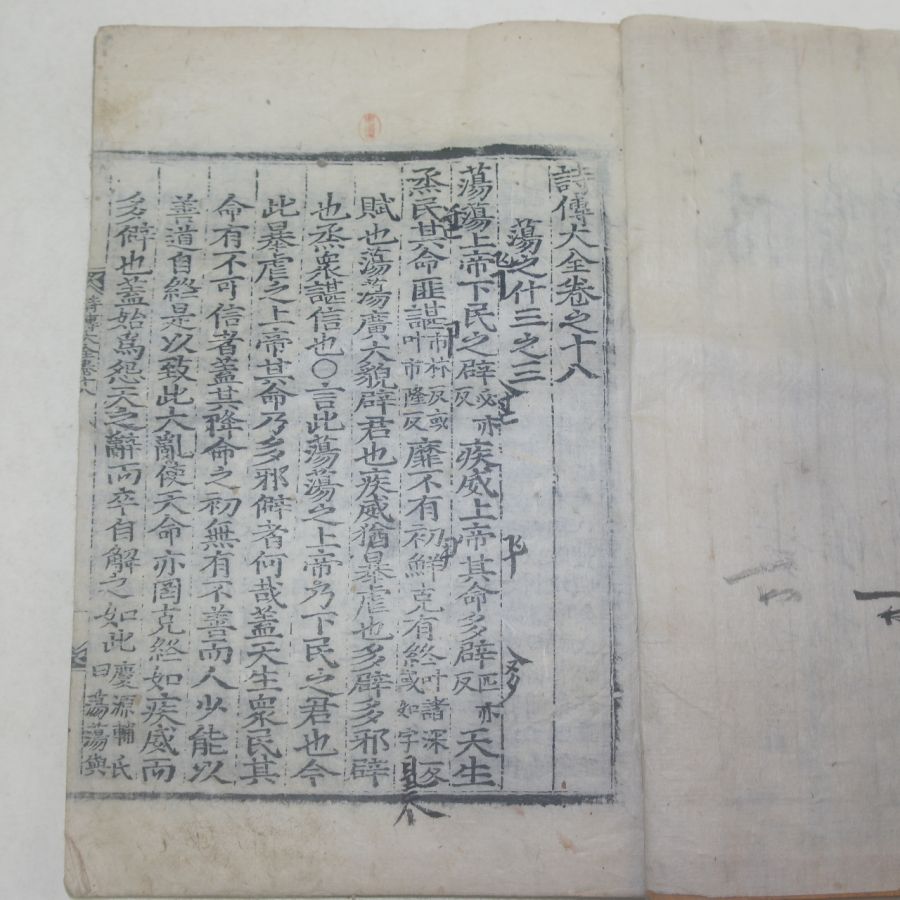 詩傳大全卷之十八
蕩之什三之三
蕩蕩上帝下民之辟必亦反疾威上帝其命多辟匹亦反天生
烝民其命匪諶市林反或叶市隆反靡不有初鮮克有終叶諸深反或如字
賦也蕩蕩廣大貌辟君也疾威猶暴虐也多辟多邪辟
也烝衆諶信也○言此蕩蕩之上帝乃下民之君也今
此暴虐之上帝其命乃多邪僻者何哉蓋天生衆民其
命有不可信者蓋其降命之初無有不善而人少能以
善道自終是以致此大亂使天命亦罔克終如疾威而
多僻也蓋始爲怨天之辭而卒自解之如此慶源輔氏曰蕩蕩與
詩傳大全卷十八